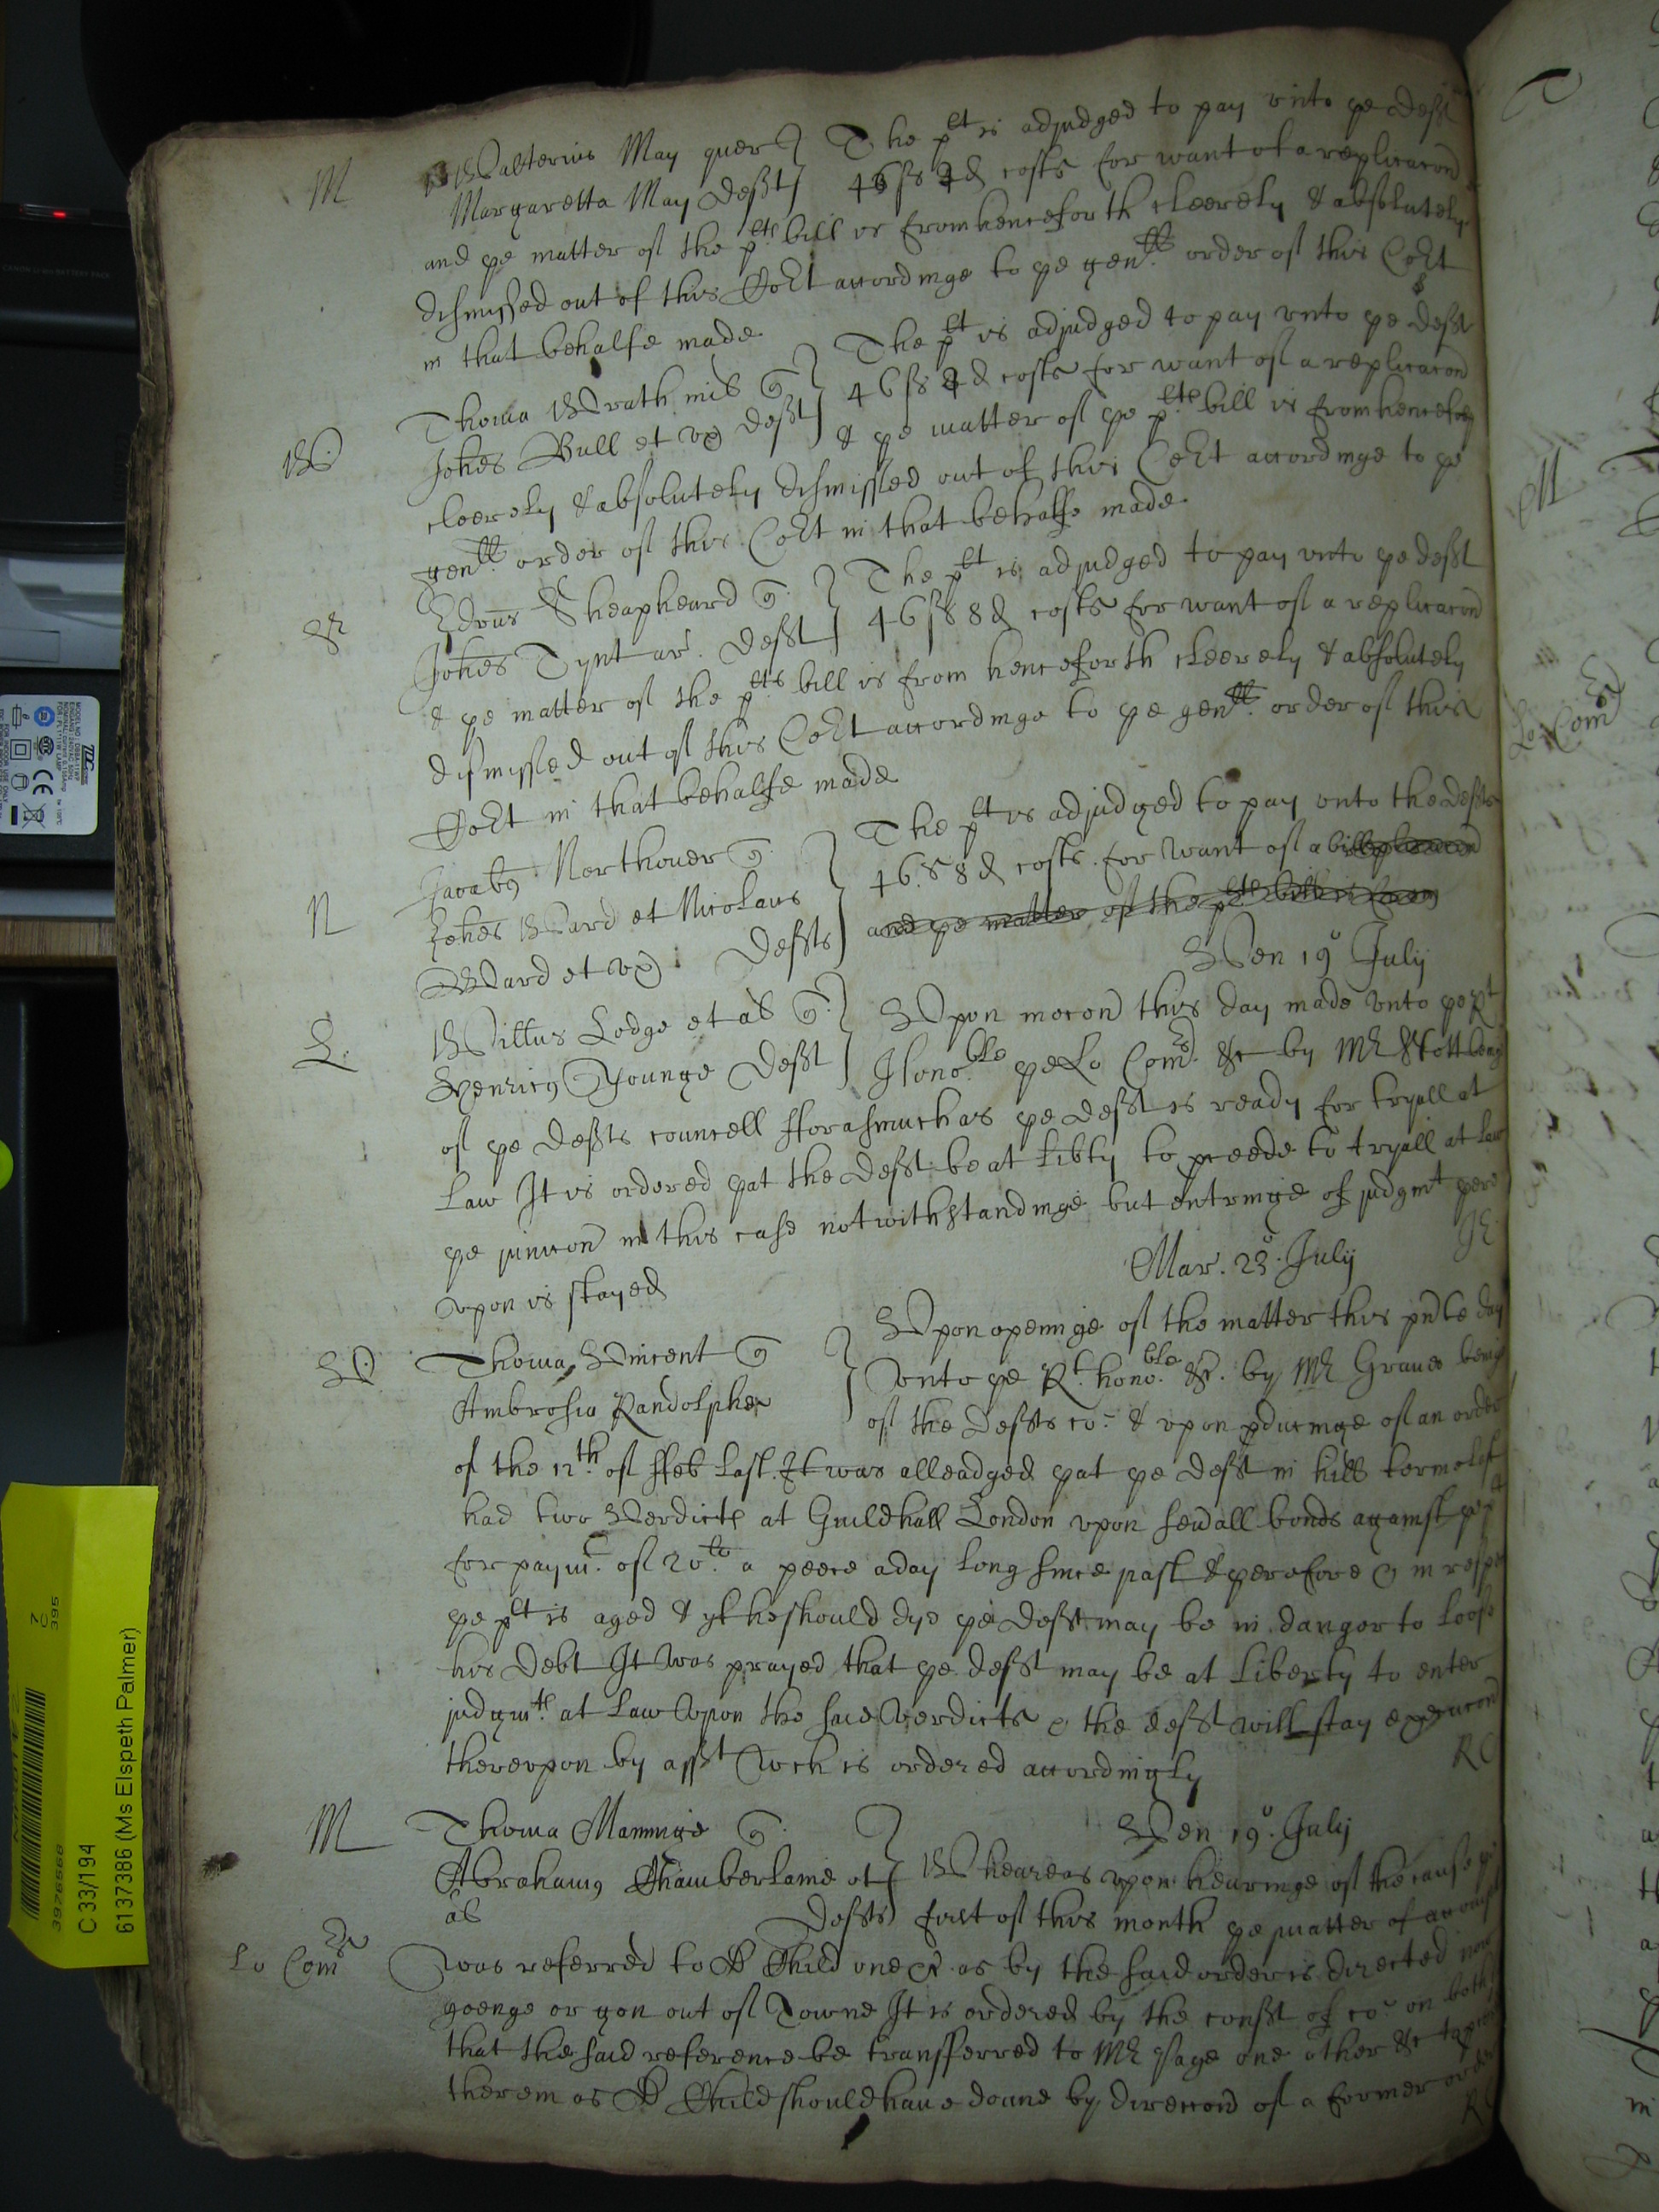 M
Walterius May quer
Margaretta May Defft
The plt is adjudged to pay unto ye Defft
46ss 8d costs for want of a replicacon
and ye matter of the plts bill is from henceforth cleerely & absolutely
dismissed out of this Cort accordinge to ye genll order of this Cort
in that behalfe made
W
Thoma Wrath mil q
Johes Bull et ux Defft
The plt is adjudged to pay unto ye Defft
46ss 8d costs for want of a replicacon
& ye matter of ye plts bill is from hencefor
cleerely & absolutely dismissed out of this Cort accordinge to ye
genll order of this Cort in that behalfe made
S
Edrus Sheapheard q
Johes Tynt ar Defft
The plt is adjudged to pay unto ye defft
46ss 8d costs for want of a replicacon
& ye matter of the plts bill is from henceforth cleerely & absolutely
dismissed out of this Cort accordinge to ye genll order of this
Cort in that behalfe made
N
Jacobus Northover q
Johes Ward et Nicolaus
Ward et ux Deffts
The plt is adjudged to pay unto the Deffts
46 s 8d costs for want of a bill
and ye matter of the plts bill is from
Ven 19o July
L
Willus Lodge et al q
Henricus Younge Defft
Upon mocon this day made unto ye Rt
Honoble ye Lo Comrs &c by Mr Scott being
of ye Deffts councell Fforasmuch as ye Defft is ready for tryall at
Law It is ordered yat the Defft be at libty to pceede to tryall at law
ye iniuccon in this case notwithstandinge but entringe of judgmt yere
upon is stayed
Mar. 23o July
V
Thoma Vincent q
Ambrosiu Randolphe
Upon openinge of the matter this pnte day
unto ye Rt honoble &c. by Mr Graues being
of the Deffts co & upon pducinge of an order
of the 12th of Ffeb last It was alleadged yat ye Defft in hill terme last
had two Verdicts at Guildhall London upon seuall bonds against ye plt
for paymt of 20li a peece a day long since past & yerefore & in respt
ye plt is aged & yt he should dye ye Defft may be in danger to loose
his Debt It was prayed that ye defft may be at liberty to enter
judgmts at Law upon the said Verdicts & the defft will stay execucon
thereupon by asst wch is ordered accordingly
RC
M
Thoma Manninge q
Abrahamus Chamberlaine et
al Deffts
Ven 19o July
Wheareas upon hearinge of the cause ye
first of this month ye matter of accompt
Lo Comrs
was referred to Dr Child one &c as by the said order is directed now
goenge or gon out of Towne It is ordered by the consst of co on both
that the said reference be transfferred to Mr Page one other &c to pceed
therein as Dr Child should haue donne by direccon of a former order
RC
C 33/194
6137386 (Ms Elspeth Palmer)
3976568
395